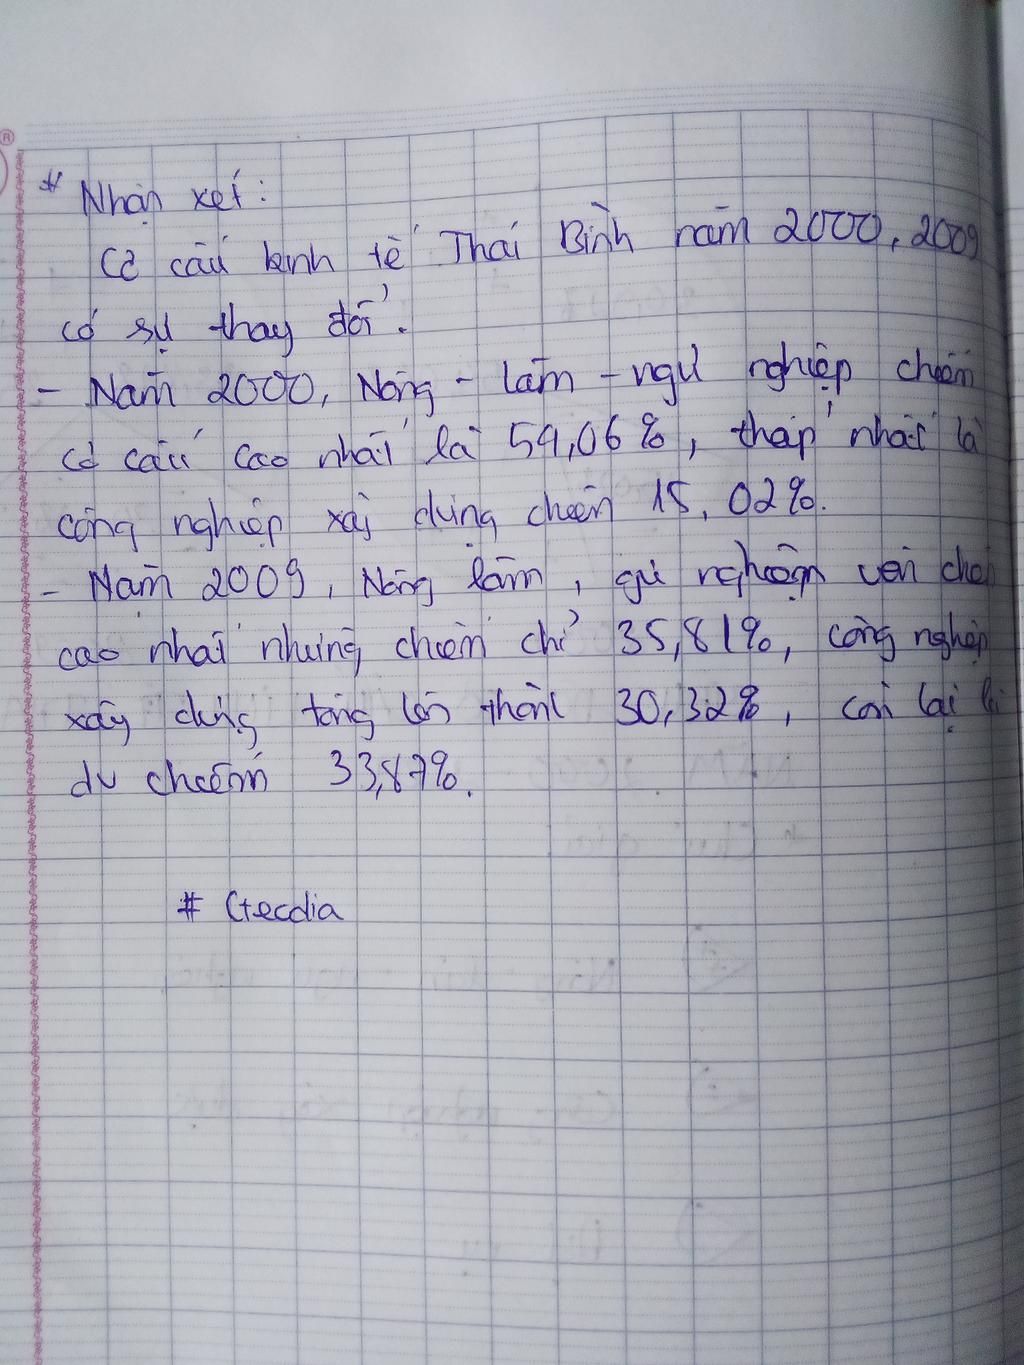 * Nhận xét:
Cơ cấu kinh tế Thái Bình năm 2000, 2009
có sự thay đổi.
- Năm 2000, Nông - lâm - ngư nghiệp chiếm
cơ cấu cao nhất là 54,06%, thấp nhất là
công nghiệp xây dựng chiếm 15,02%.
- Năm 2009, Nông lâm, gư nghiệp vẫn
cao nhất nhưng chiếm chỉ 35,81%, công nghiệp
xây dựng tăng lên thành 30,32%, còn lại là
dv chiếm 33,87%.
# Ctecdia